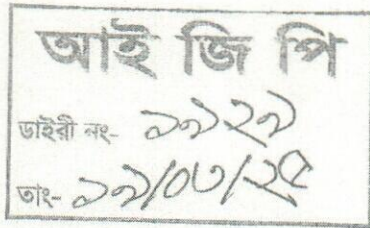 আই জি পি
ডাইরী নং- ১৯২৯
তাং- ১৯/০৩/২৫